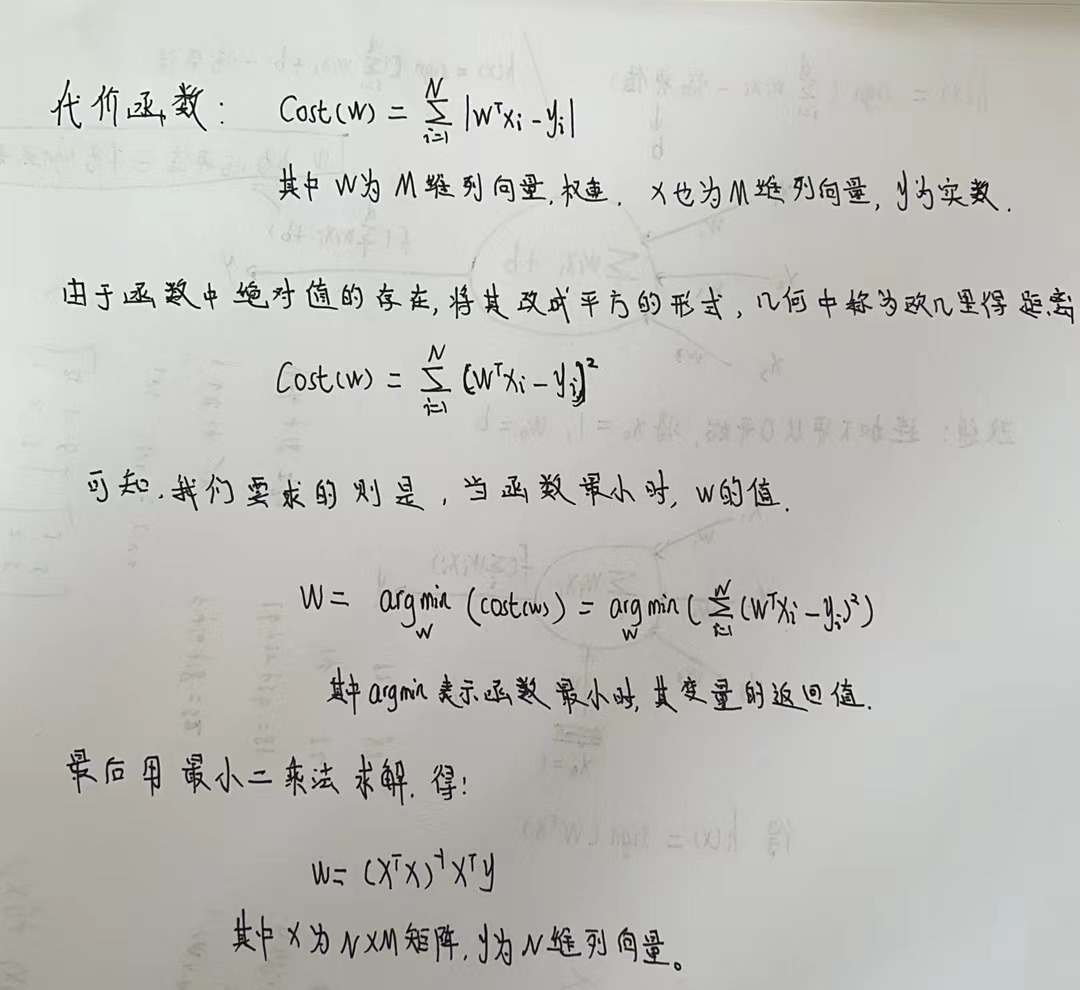 代价函数: Cost(w) = \sum_{i=1}^{N} |W^T x_i - y_i|
其中 W为 M 维列向量, 权重. X也为M维列向量, y为实数.
由于函数中绝对值的存在, 将其改成平方的形式, 几何中称为欧几里得距离
Cost(w) = \sum_{i=1}^{N} (W^T x_i - y_i)^2
可知, 我们要求的则是, 当函数最小时, w的值.
W = argmin_W (cost(w)) = argmin_W (\sum_{i=1}^{N} (W^T x_i - y_i)^2)
其中 argmin 表示函数最小时, 其变量的返回值.
最后用最小二乘法求解, 得:
W = (X^T X)^{-1} X^T y
其中 X 为 N×M 矩阵, y为 N 维列向量。